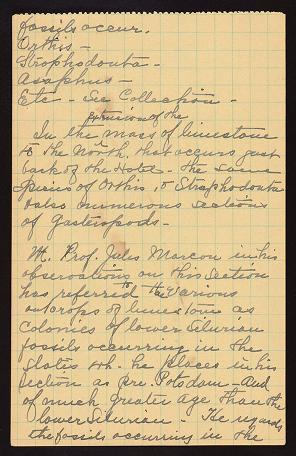 fossils occur.
Orthis -
Strophodonta -
Asaphus -
Etc - See Collection -
extension of the
In the mass of limestone
to the North, that occurs just
back of the Hotel - the same
species of Orthis, & Strophodonta
& also numerous sections
of Gasteropods -
Mr. Prof. Jules Marcou in his
observations on this Section
has referred to the various
outcrops of limestone as
colonies of lower Silurian
fossils occurring in the
slates wh. he places in his
section as pre. Potsdam - And
of much greater age than the
lower Silurian - He regards
the fossils occurring in the